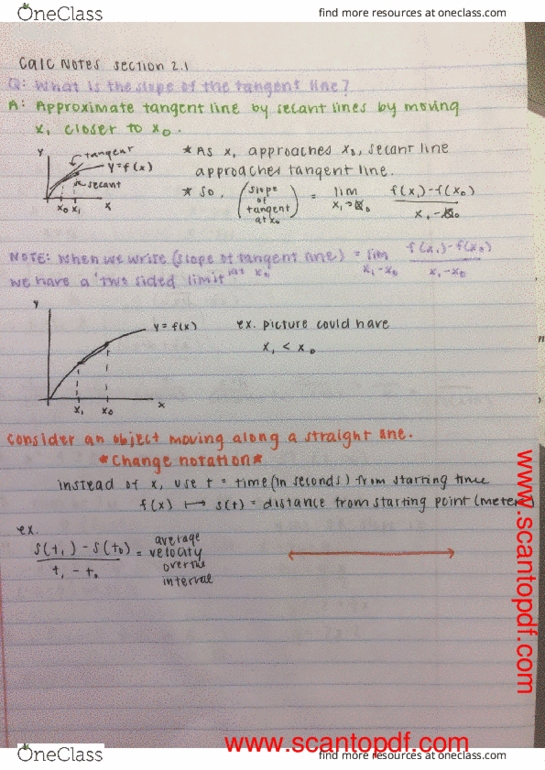 OneClass
find more resources at oneclass.com
Calc Notes section 2.1
Q: What is the slope of the tangent line?
A: Approximate tangent line by secant lines by moving
x₁ closer to x₀.
y
tangent
y=f(x)
secant
x₀ x₁ x
* As x₁ approaches x₀, secant line
approaches tangent line.
* So, (slope of tangent at x₀) = lim x₁→x₀ f(x₁)-f(x₀) / x₁-x₀
NOTE: When we write (slope of tangent line) = lim x₁-x₀ f(x₁)-f(x₀) / x₁-x₀
at x₀
we have a "two sided limit"
y
y=f(x)
x₁ x₀ x
ex. picture could have
x₁ < x₀
Consider an object moving along a straight line.
*Change notation*
instead of x, use t = time (in seconds) from starting time
f(x) ↦ s(t) = distance from starting point (meters)
ex.
s(t₁) - s(t₀) / t₁ - t₀ = average velocity over the interval
www.scantopdf.com
www.scantopdf.com
OneClass
find more resources at oneclass.com